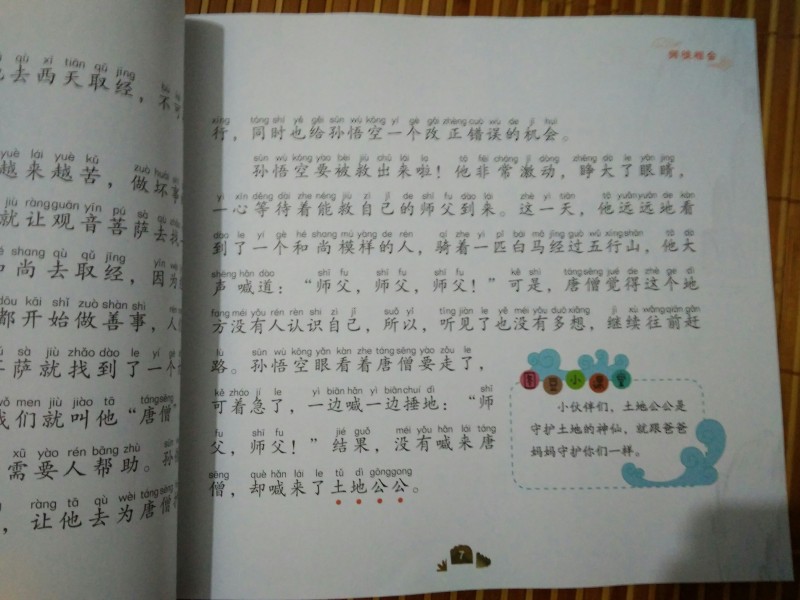 qù xī tiān qǔ jīng
去西天取经，不可
yuè lái yuè kǔ zuò huài shì
越来越苦，做坏事
jiù ràng guān yīn pú sà qù zhǎo
就让观音菩萨去找
shang qù qǔ jīng yīn wèi
和尚去取经，因为
dōu kāi shǐ zuò shàn shì
都开始做善事，人
sà jiù zhǎo dào le yí gè
萨就找到了一个
men jiù jiào tā táng sēng
我们就叫他“唐僧”
xū yào rén bāng zhù
需要人帮助。孙
ràng tā qù wèi táng sēng
，让他去为唐僧
xíng tóng shí yě gěi sūn wù kōng yí gè gǎi zhèng cuò wù de jī huì
行，同时也给孙悟空一个改正错误的机会。
sūn wù kōng yào bèi jiù chū lái la tā fēi cháng jī dòng zhēng dà le yǎn jīng
孙悟空要被救出来啦！他非常激动，睁大了眼睛，
yì xīn děng dài zhe néng jiù zì jǐ de shī fu dào lái zhè yì tiān tā yuǎn yuǎn de kàn
一心等待着能救自己的师父到来。这一天，他远远地看
dào le yí gè hé shang mú yàng de rén qí zhe yì pǐ bái mǎ jīng guò wǔ xíng shān tā dà
到了一个和尚模样的人，骑着一匹白马经过五行山，他大
shēng hǎn dào shī fu shī fu shī fu kě shì táng sēng jué de zhè ge dì
声喊道：“师父，师父，师父！”可是，唐僧觉得这个地
fang méi yǒu rén rèn shi zì jǐ suǒ yǐ tīng jiàn le yě méi yǒu duō xiǎng jì xù wǎng qián gǎn
方没有人认识自己，所以，听见了也没有多想，继续往前赶
lù sūn wù kōng yǎn kàn zhe táng sēng yào zǒu le
路。孙悟空眼看着唐僧要走了，
kě zháo jí le yì biān hǎn yì biān chuí dì shī
可着急了，一边喊一边捶地：“师
fu shī fu jié guǒ méi yǒu hǎn lái táng
父，师父！”结果，没有喊来唐
sēng què hǎn lái le tǔ dì gōng gong
僧，却喊来了土地公公。
小伙伴们，土地公公是
守护土地的神仙，就跟爸爸
妈妈守护你们一样。
7